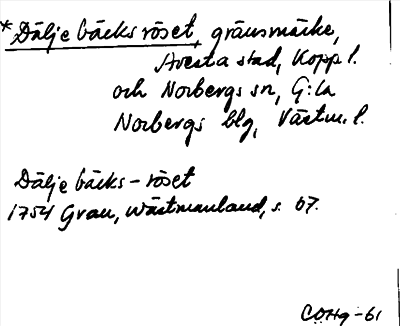 *Dälje bäcks röset, gränsmärke,
Avesta stad, Kopp l.
och Norbergs sn, G:la
Norbergs blg, Västm. l.
Dälje bäcks-röset
1754 Grau, Wästmanland, s. 67.
COHg-61